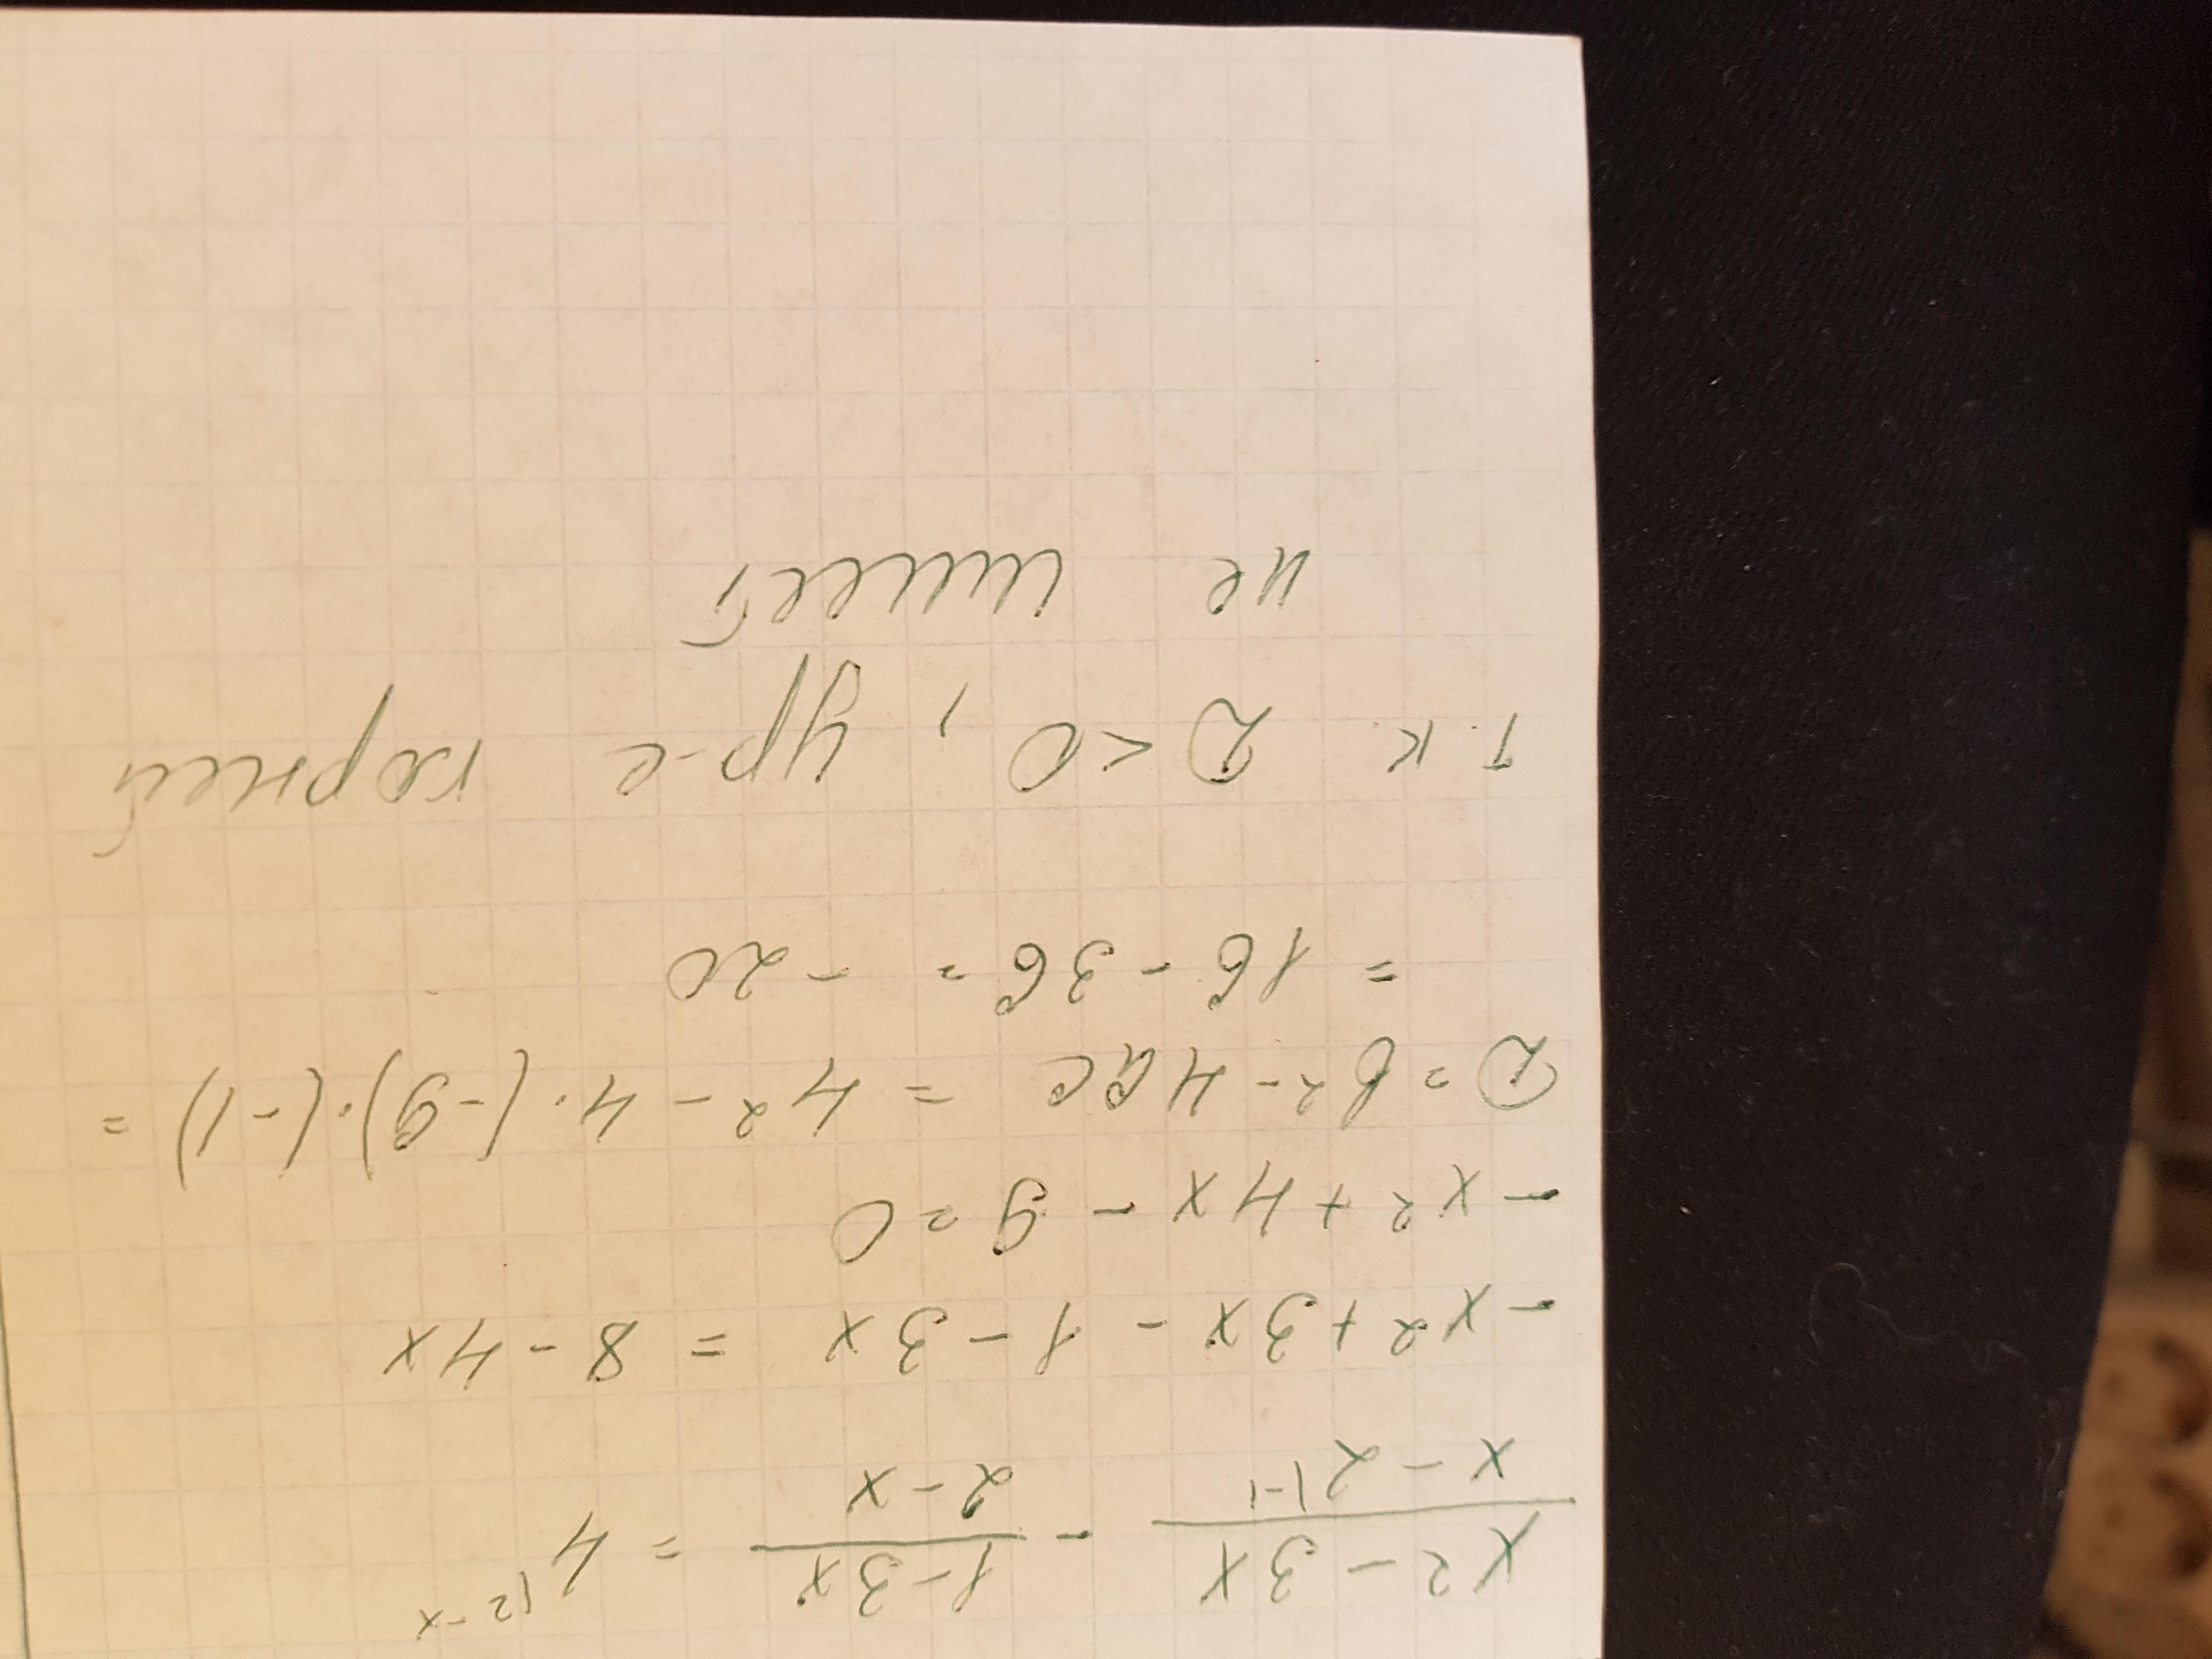 x² - 3x / x - 2 |-1 - 1 - 3x / 2 - x = 4 |2 - x
- x² + 3x - 1 - 3x = 8 - 4x
- x² + 4x - 9 = 0
D = b² - 4ac = 4² - 4 · (-9) · (-1) =
= 16 - 36 = - 20
т. к. D < 0, ур-е корней
не имеет